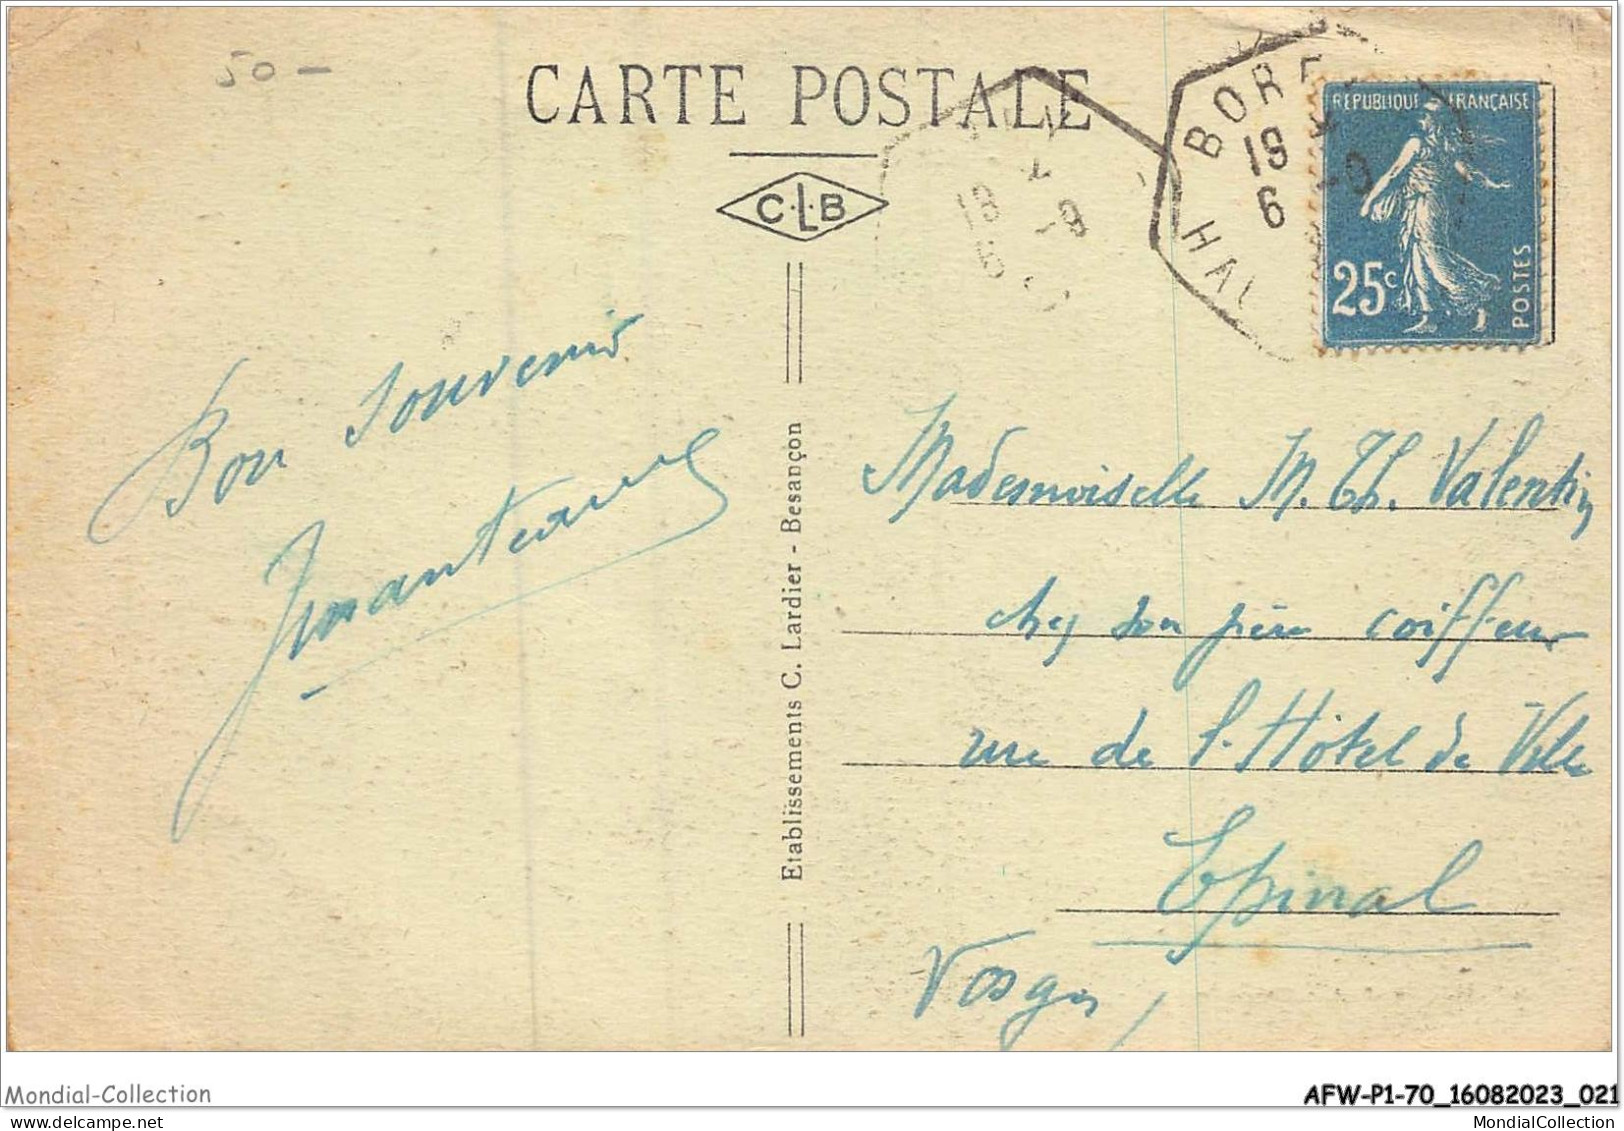 50 —
CARTE POSTALE
C.L.B
BORE
19
6 -9
HAL
19
6 -9
REPUBLIQUE FRANÇAISE
25c
POSTES
Bon souvenir
Etablissements C. Lardier - Besançon
Mademoiselle M. Th. Valentin
chez son père coiffeur
rue de l'Hôtel de Ville
Epinal
Vosges
Mondial-Collection
AFW-P1-70_16082023_021
MondialCollection